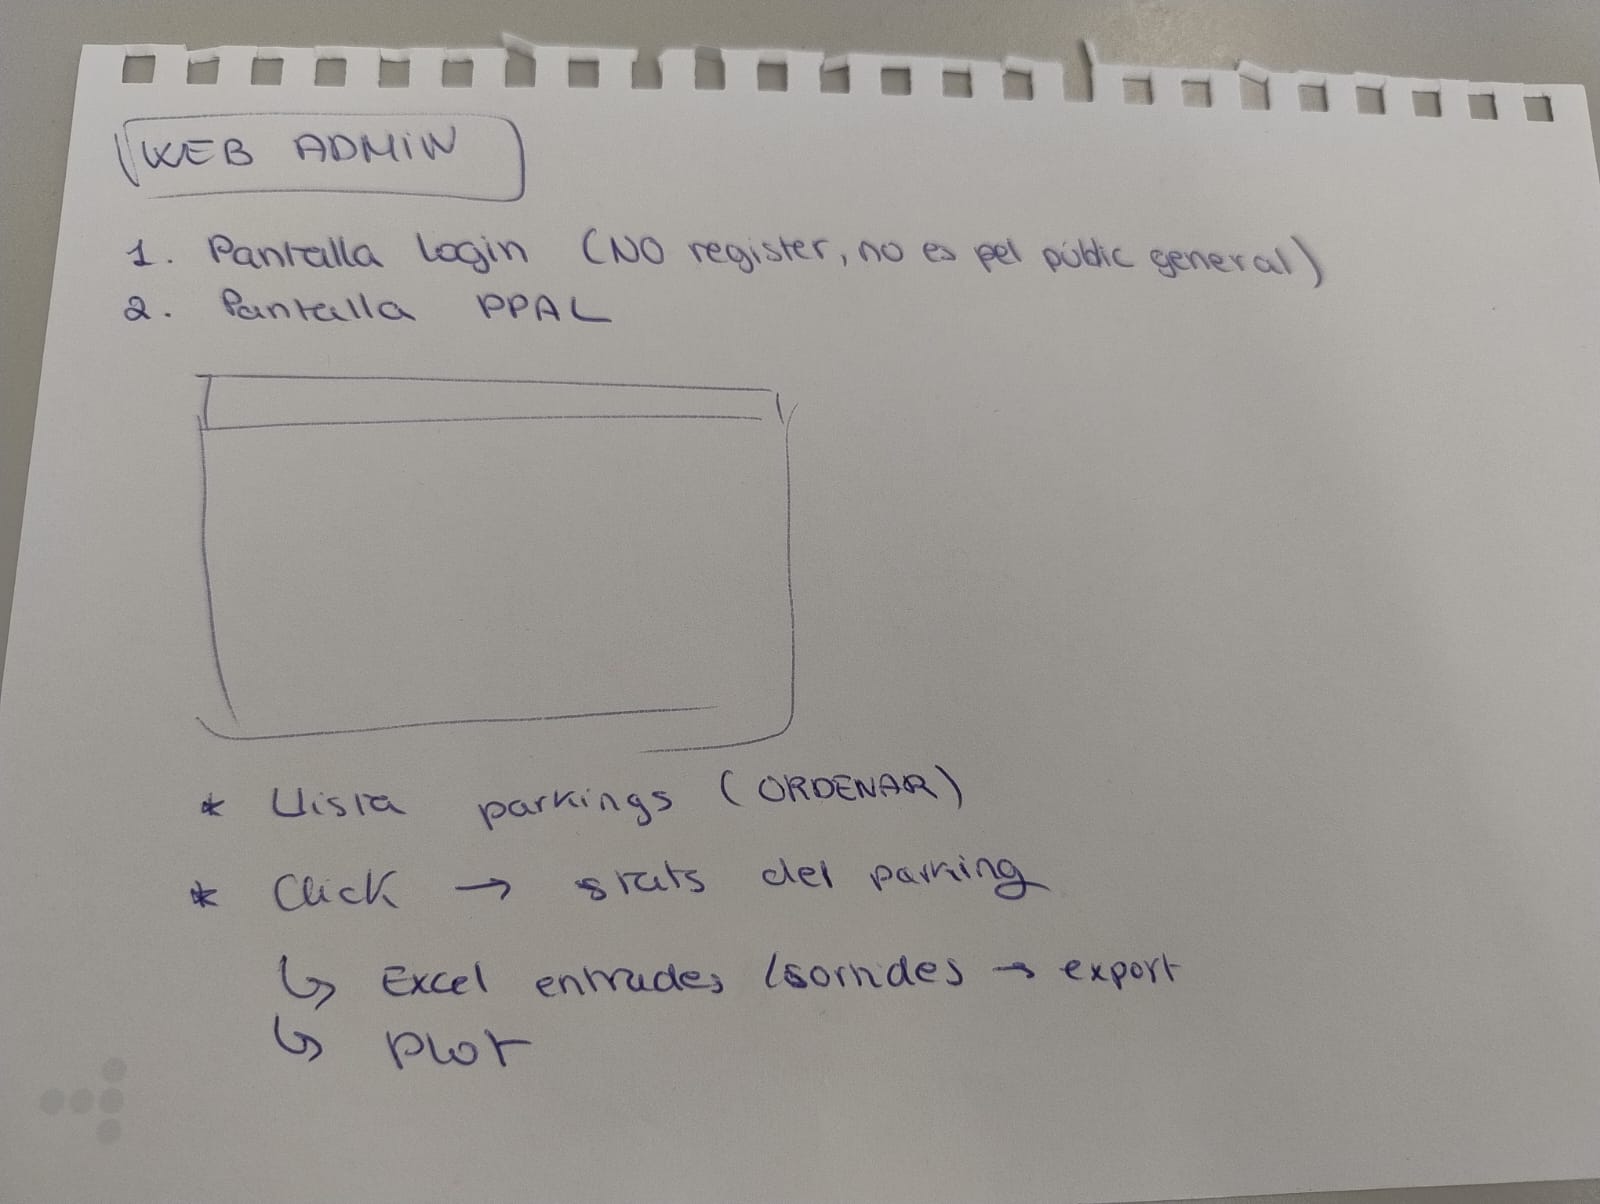 WEB ADMIN
1. Pantalla login (NO register, no es pel públic general)
2. Pantalla PPAL
* Llista parkings (ORDENAR)
* Click → stats del parking
↳ Excel entrades / sortides → export
↳ plot